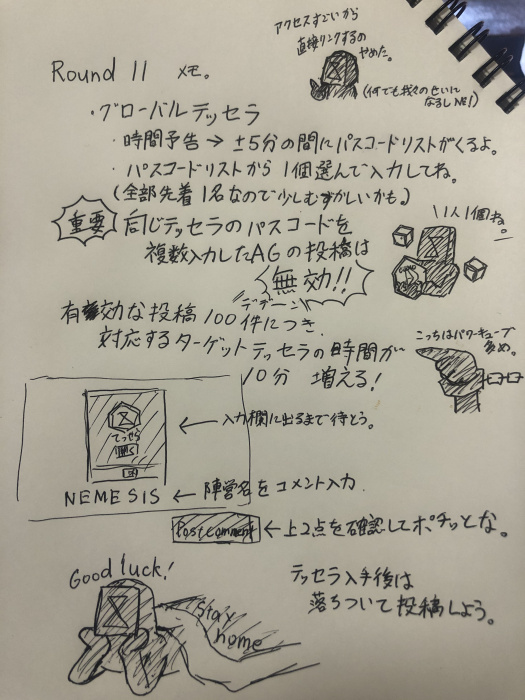 アクセスすごいから
直接リンクするの
やめた。
(何でも我々のせいに
なるしNE!)
Round 11 メモ。
・グローバルテッセラ
・時間予告→±5分の間にパスコードリストがくるよ。
・パスコードリストから1個選んで入力してね。
(全部先着1名なので少しむずかしいかも。)
重要 同じテッセラのパスコードを
複数入力したAGの投稿は
無効!!
デデーン
1人1個ね。
有効な投稿100件につき
対応するターゲットテッセラの時間が
10分 増える!
こっちはパワーキューブ
多め。
てっせら
←入力欄に出るまで待とう。
NEMESIS ←陣営名をコメント入力
Post comment ←上2点を確認してポチッとな。
Good luck!
stay
home
テッセラ入手後は
落ちついて投稿しよう。